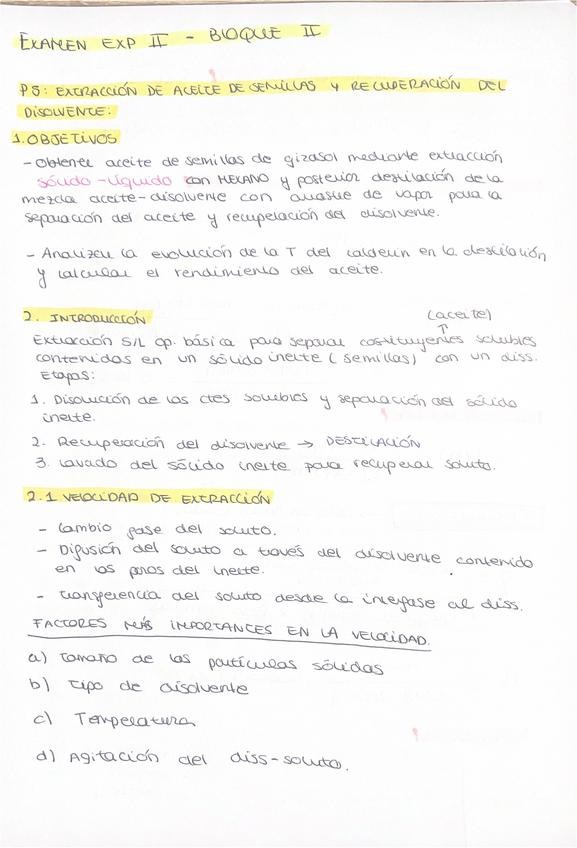 EXAMEN EXP II - BLOQUE II
P5: EXTRACCIÓN DE ACEITE DE SEMILLAS Y RECUPERACIÓN DEL
DISOLVENTE:
1. OBJETIVOS
- Obtener aceite de semillas de girasol mediante extracción
sólido-líquido con HEXANO y posterior destilación de la
mezcla aceite-disolvente con arrastre de vapor para la
separación del aceite y recuperación del disolvente.
- Analizar la evolución de la T del calderín en la destilación
y calcular el rendimiento del aceite.
2. INTRODUCCIÓN
(aceite)
↑
Extracción S/L op. básica para separar costituyentes solubles
contenidos en un sólido inerte (semillas) con un diss.
Etapas:
1. Disolución de los ctes solubles y separación del sólido
inerte.
2. Recuperación del disolvente → DESTILACIÓN
3. Lavado del sólido inerte para recuperar soluto.
2.1 VELOCIDAD DE EXTRACCIÓN
- Cambio fase del soluto.
- Difusión del soluto a través del disolvente contenido
en los poros del inerte.
- Transferencia del soluto desde la interfase al diss.
FACTORES MÁS IMPORTANCES EN LA VELOCIDAD.
a) Tamaño de las partículas sólidas
b) Tipo de disolvente
c) Temperatura
d) Agitación del diss-soluto.